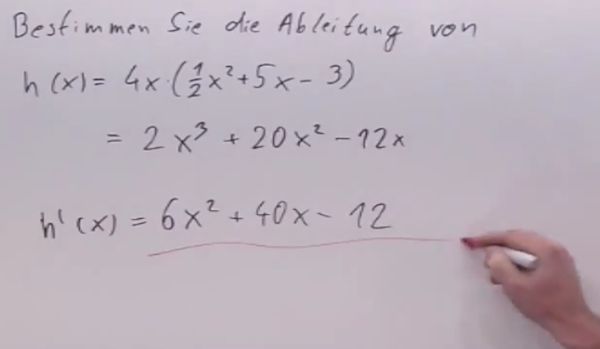 Bestimmen Sie die Ableitung von
h(x) = 4x·(½x²+5x-3)
= 2x³ + 20x² - 12x
h'(x) = 6x² + 40x - 12